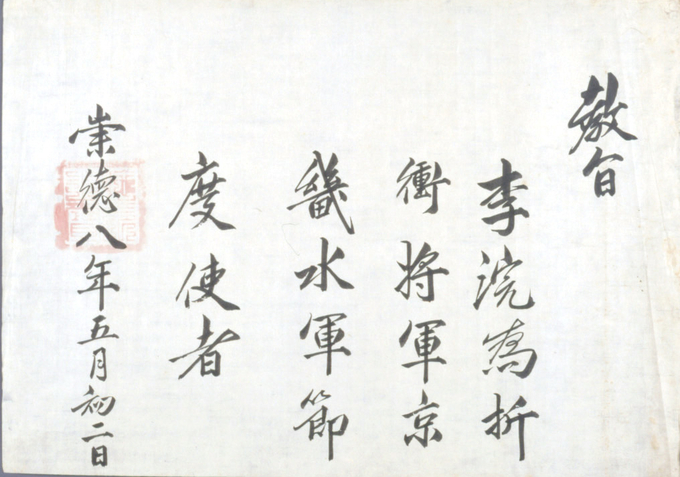 教旨
李浣為折
衝將軍京
畿水軍節
度使者
崇德八年五月初二日